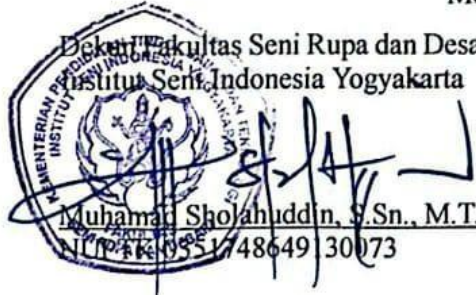 M
Dekan Fakultas Seni Rupa dan Desa
Institut Seni Indonesia Yogyakarta
KEMENTERIAN PENDIDIKAN TINGGI, SAINS DAN TEKNOLOGI
INSTITUT SENI INDONESIA YOGYAKARTA
Muhamad Sholahuddin, S.Sn., M.T.
0551748649130073